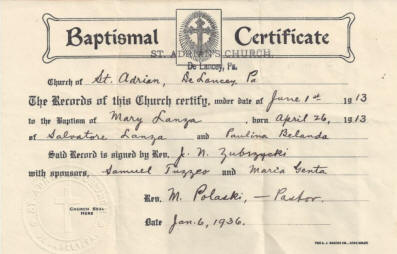 Baptismal Certificate
ST. ADRIAN'S CHURCH.
De Lancey, Pa.
Church of St. Adrian, De Lancey Pa
The Records of this Church certify, under date of June 1st 1913
to the Baptism of Mary Lanza, born April 26, 1913
of Salvatore Lanza and Paulina Belanda
Said Record is signed by Rev. J. N. Zubrzycki
with sponsors, Samuel Tuzzeo and Maria Genta
Rev. M. Polaski, — Pastor.
CHURCH SEAL
HERE
Date Jan. 6, 1936.